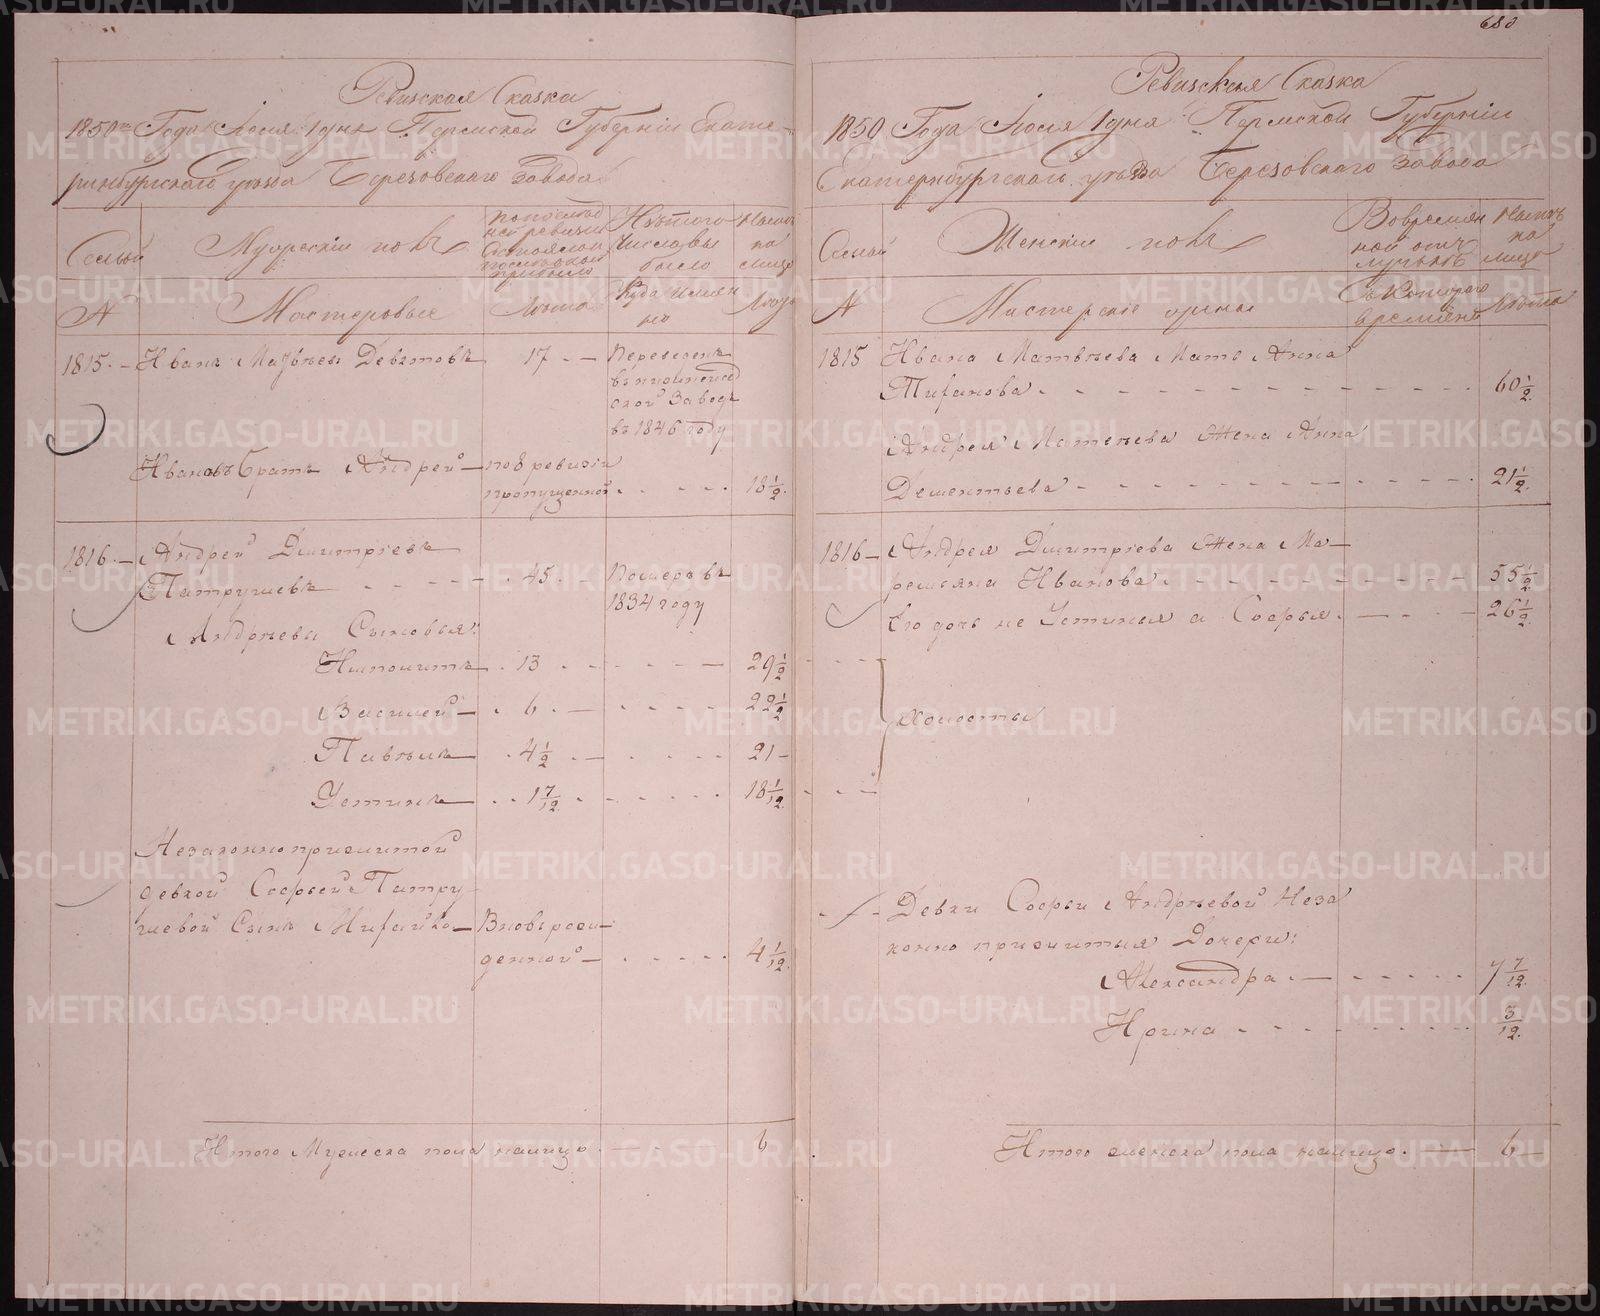 680
Ревизская Сказка
1850го Года Июля 1 дня Пермской Губернии Екате-
ринбургскаго уезда Березовскаго завода
Семьи
Мужеский полъ
По последней ревизии состояло и после оной прибыло
Из того числа выбыло
Ныне на лицо
N
Мастеровые
Лета
Куда именно
Лета
1815. Иванъ Матвеевъ Девятовъ 17
Переведенъ
заводъ
въ 1846 году
Ивановъ Братъ Андрей по 8 ревизии
пропущенной 18 1/2.
1816. Андрей Дмитриевъ
Патрушевъ 45 Померъ въ
1834 году
Андреевы Сыновья:
Ипполитъ 13 29 1/2
Василей 6 22 1/2
Павелъ 4 1/2 21
Устинъ 1 7/12. 18 1/12.
Незаконноприжитой
девкой Софьей Патру-
шевой Сынъ Михайло Вновьрож-
денной 4 1/12.
Итого Мужеска пола налицо. 6
Ревизская Сказка
1850 Года Июля 1 дня Пермской Губернии
Екатеринбургскаго уезда Березовскаго завода
Семьи
Женский полъ
Во временной отлучкъ
Ныне на лицо
N
Мастерские жены
Съ котораго времени
Лета
1815 Ивана Матвеева Мать Анна
60 1/2.
Андрея Матвеева Жена Анна
Дементьева 21 1/2.
1816 Андрея Дмитриева Жена Ма-
ремьяна Иванова 55 1/2
Его дочь не Устинья а Софья. 26 1/2.
холосты
Девки Софьи Андреевой Неза
конно прижитыя Дочери:
Александра 7 7/12.
Ирина 3/12.
Итого женска пола налицо. 6
METRIKI.GASO-URAL.RU